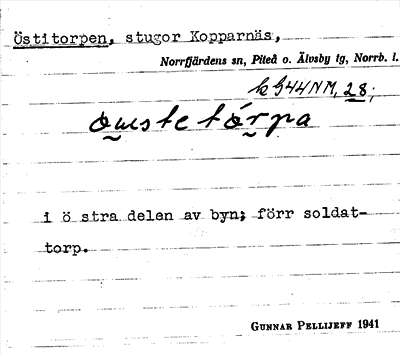 Östitorpen, stugor Kopparnäs,
Norrfjärdens sn, Piteå o. Älvsby tg, Norrb. l.
28;
i ö stra delen av byn; förr soldat-
torp.
GUNNAR PELLIJEFF 1941